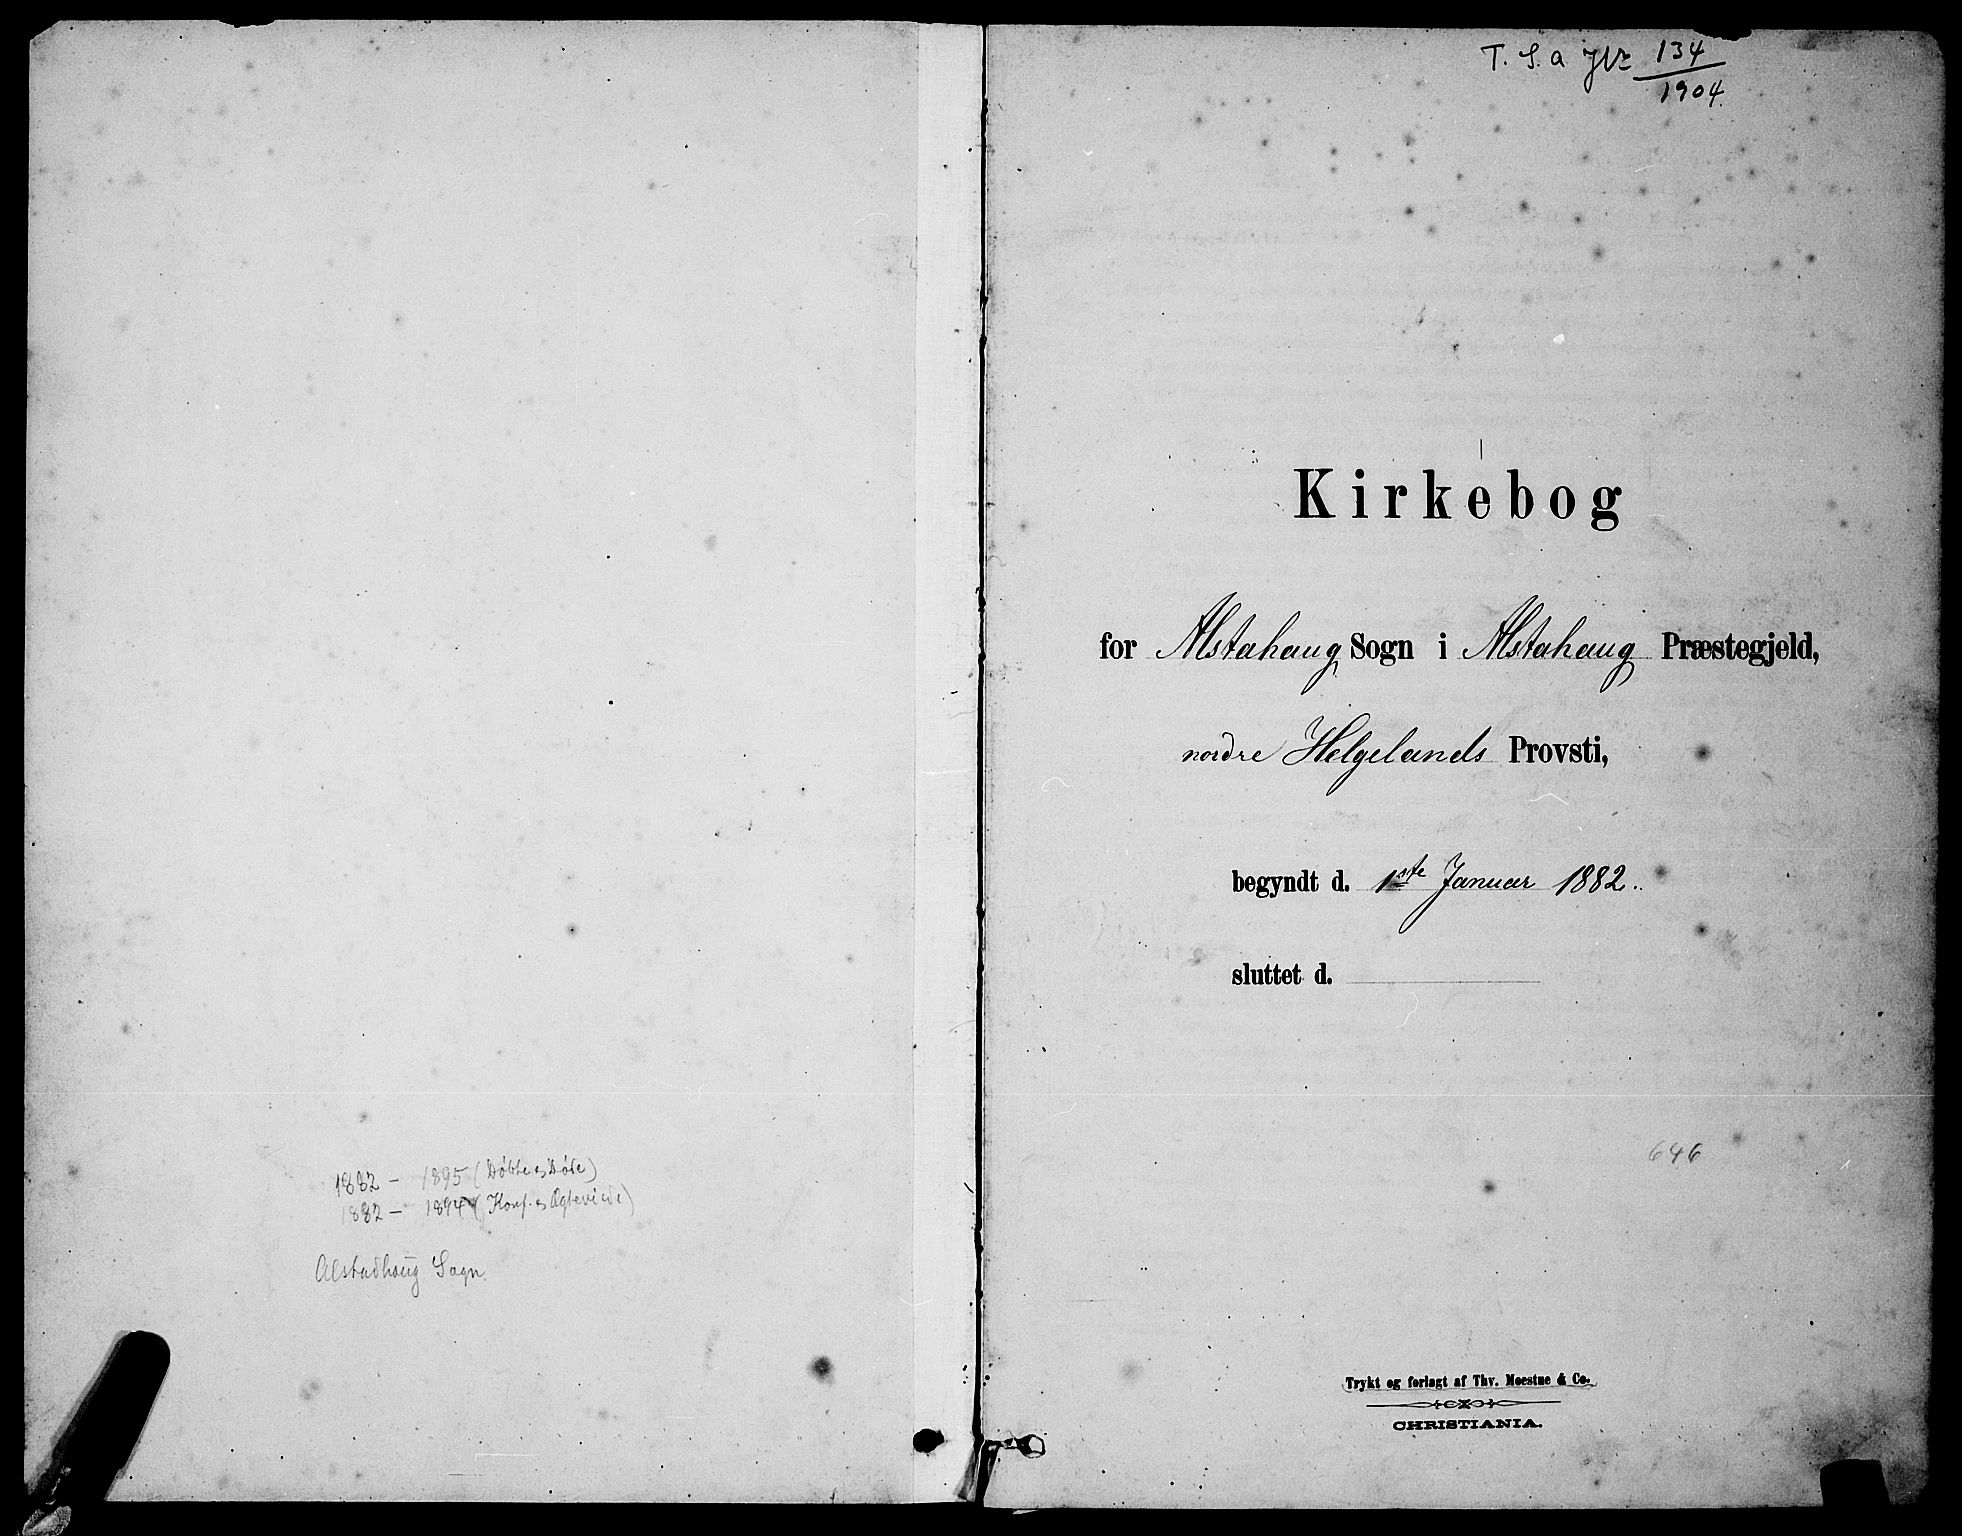 1882 – 1895 (Døbte og Døde)
1882 – 1894 (Konf. og Ægteviede)
Alstadhaug Sogn.
T. S. a JNr 134/1904.
Kirkebog
for Alstahaug Sogn i Alstahaug Præstegjeld,
nordre Helgelands Provsti,
begyndt d. 1ste Januar 1882.
sluttet d.
646
Trykt og forlagt af Thv. Moestue & Co.
CHRISTIANIA.